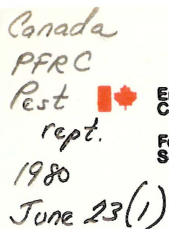 Canada
PFRC
Pest
rept.
1980
June 23(1)